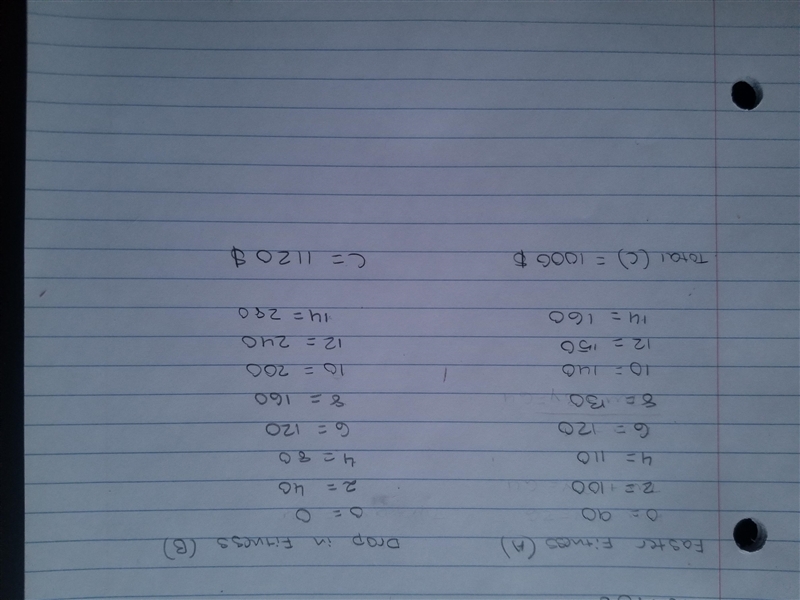 Faster Fitness (A) Drop in Fitness (B)
0 = 90 0 = 0
2 = 100 2 = 40
4 = 110 4 = 80
6 = 120 6 = 120
8 = 130 8 = 160
10 = 140 10 = 200
12 = 150 12 = 240
14 = 160 14 = 280
Total (C) = 1000 $ C = 1120 $